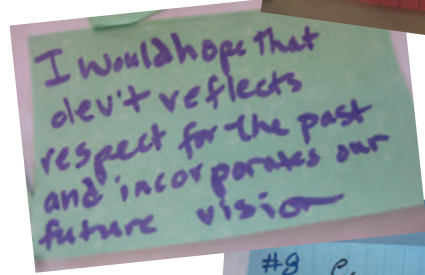 I would hope that
dev't reflects
respect for the past
and incorporates our
future vision
#8